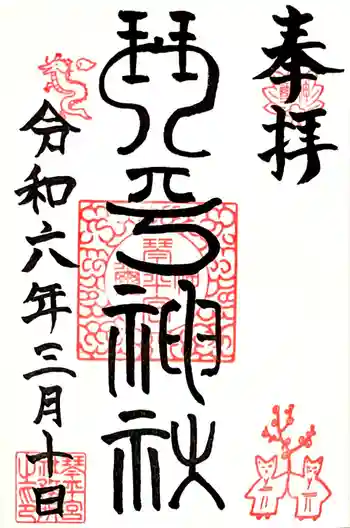 奉拝
琴平神社
令和六年三月十日